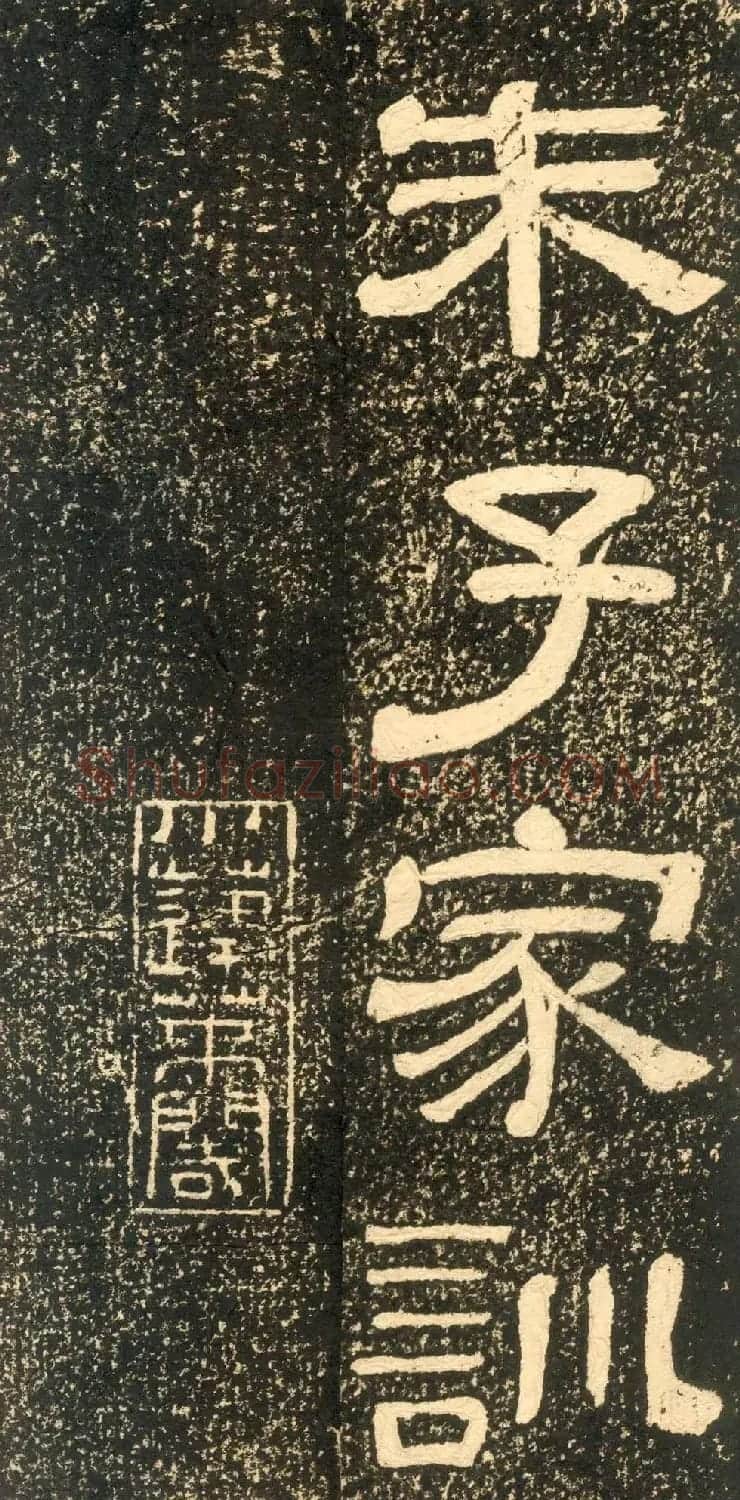 朱子家訓
Shufaziliao.COM